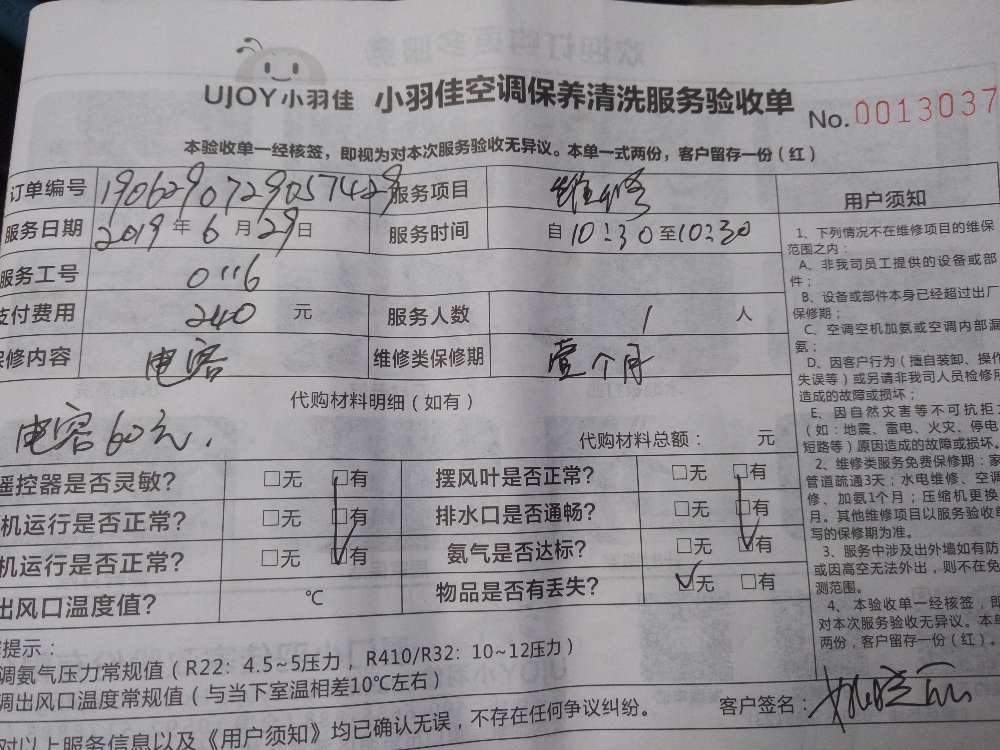 UJOY小羽佳 小羽佳空调保养清洗服务验收单 No.0013037
本验收单一经核签，即视为对本次服务验收无异议。本单一式两份，客户留存一份（红）
订单编号 1906290729057429 服务项目 维修
服务日期 2019年6月29日 服务时间 自10:30至10:30
服务工号 0116
支付费用 240 元 服务人数 1 人
保修内容 电容 维修类保修期 壹个月
代购材料明细（如有）
电容60元，
代购材料总额： 元
遥控器是否灵敏？ □无 □有 摆风叶是否正常？ □无 □有
机运行是否正常？ □无 □有 排水口是否通畅？ □无 □有
机运行是否正常？ □无 □有 氨气是否达标？ □无 □有
出风口温度值？ ℃ 物品是否有丢失？ □无 □有
提示：
调氨气压力常规值（R22：4.5~5压力，R410/R32：10~12压力）
调出风口温度常规值（与当下室温相差10℃左右）
对以上服务信息以及《用户须知》均已确认无误，不存在任何争议纠纷。 客户签名：
用户须知
1、下列情况不在维修项目的维保
范围之内：
A、非我司员工提供的设备或部
件；
B、设备或部件本身已经超过出厂
保修期；
C、空调空机加氨或空调内部漏
氨；
D、因客户行为（擅自装卸、操作
失误等）或另请非我司人员检修所
造成的故障或损坏；
E、因自然灾害等不可抗拒
（如：地震、雷电、火灾、停电
短路等）原因造成的故障或损坏。
2、维修类服务免费保修期：家
管道疏通3天；水电维修、空调
修、加氨1个月；压缩机更换
月。其他维修项目以服务验收单
写的保修期为准。
3、服务中涉及出外墙如有防
或因高空无法外出，则不在免
测范围。
4、本验收单一经核签，即
对本次服务验收无异议。本单
两份，客户留存一份（红）。